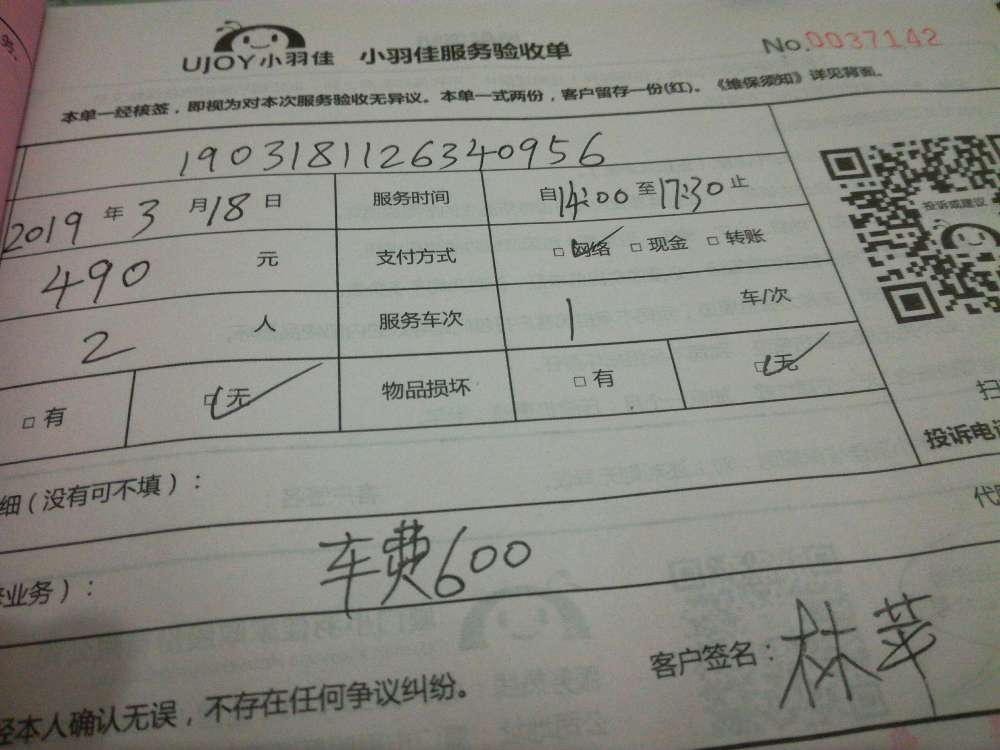 UJOY小羽佳 小羽佳服务验收单 No.0037142
本单一经核签，即视为对本次服务验收无异议。本单一式两份，客户留存一份(红)。《维保须知》详见背面。
1903181126340956
2019 年 3 月 18 日 服务时间 自14:00 至17:30 止
490 元 支付方式 □网络 □现金 □转账
投诉或建议
2 人 服务车次 1 车/次
□有 □无 物品损坏 □有 □无
扫
投诉电话
细（没有可不填）：
代
业务）：
车费600
客户签名：林苹
经本人确认无误，不存在任何争议纠纷。